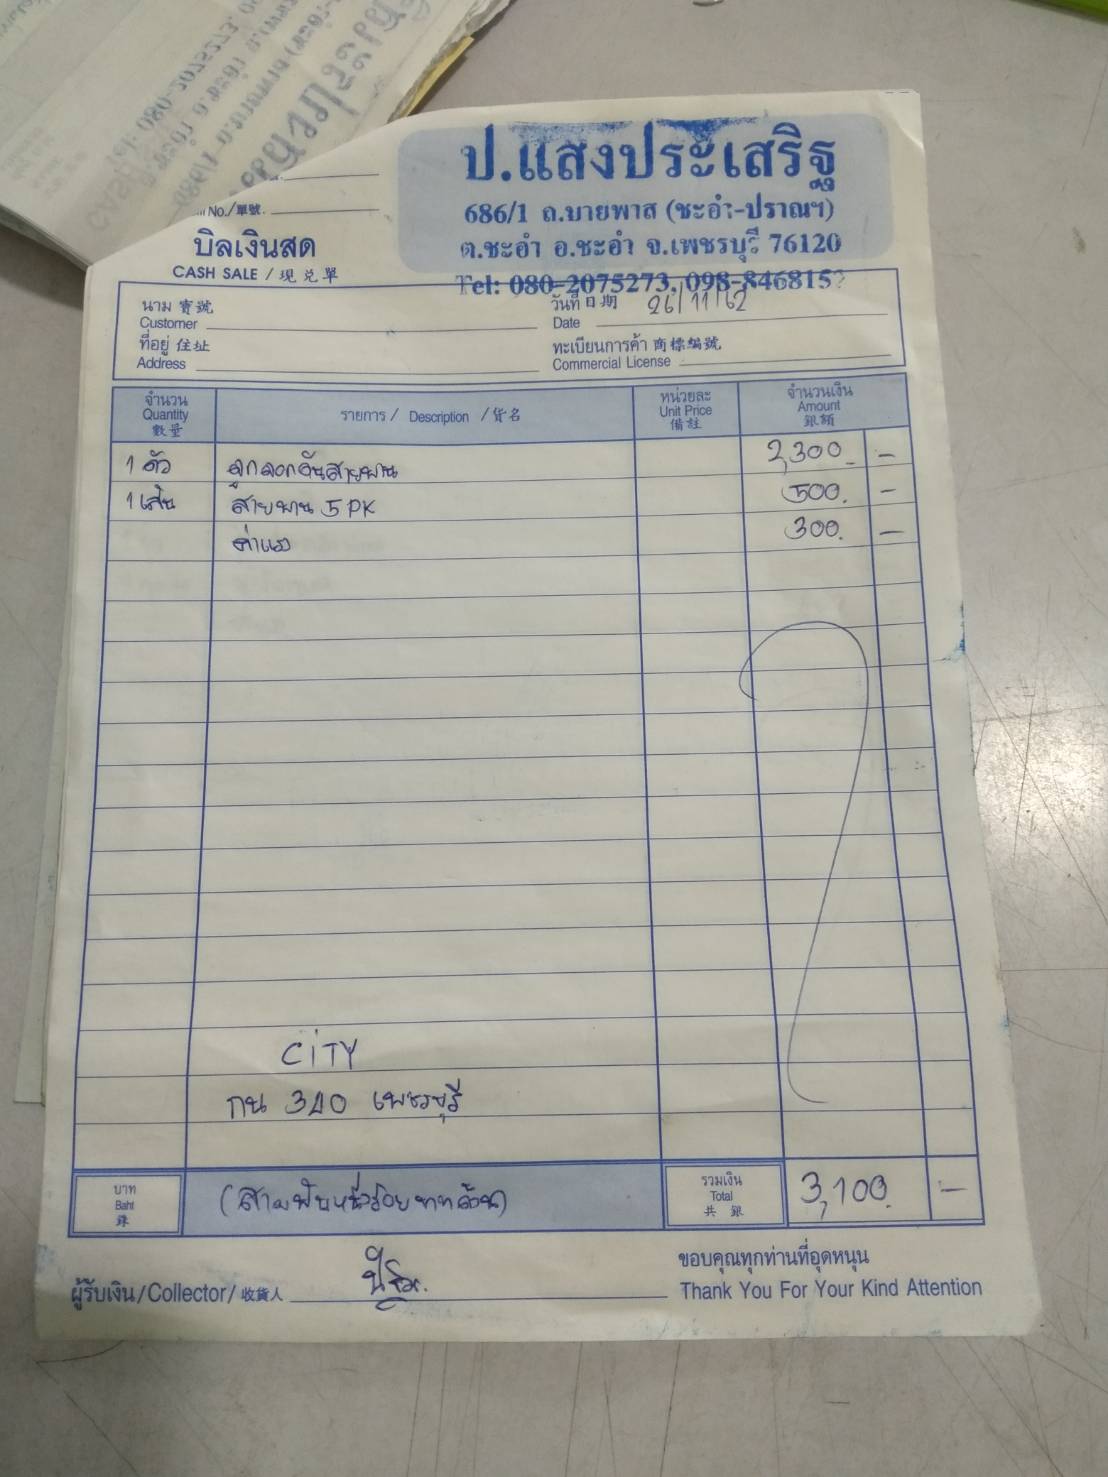 ป.แสงประเสริฐ
686/1 ถ.บายพาส (ชะอำ-ปราณฯ)
ต.ชะอำ อ.ชะอำ จ.เพชรบุรี 76120
Tel: 080-2075273, 098-846815
No./單號.
บิลเงินสด
CASH SALE / 現兑單
นาม 寶號
Customer
วันที่ 日期 26/11/62
Date
ที่อยู่ 住址
Address
ทะเบียนการค้า 商標編號
Commercial License
จำนวน Quantity 數量
รายการ / Description / 货名
หน่วยละ Unit Price 備註
จำนวนเงิน Amount 銀額
1 ตัว ลูกลอกดันสายพาน 2,300.-
1 เส้น สายพาน 5 PK 500.-
ค่าแรง 300.-
CiTY
กน 340 เพชรบุรี
บาท Baht (สามพันหนึ่งร้อยบาทถ้วน) รวมเงิน Total 共 銀 3,100.-
ผู้รับเงิน/Collector/收貨人
ขอบคุณทุกท่านที่อุดหนุน
Thank You For Your Kind Attention